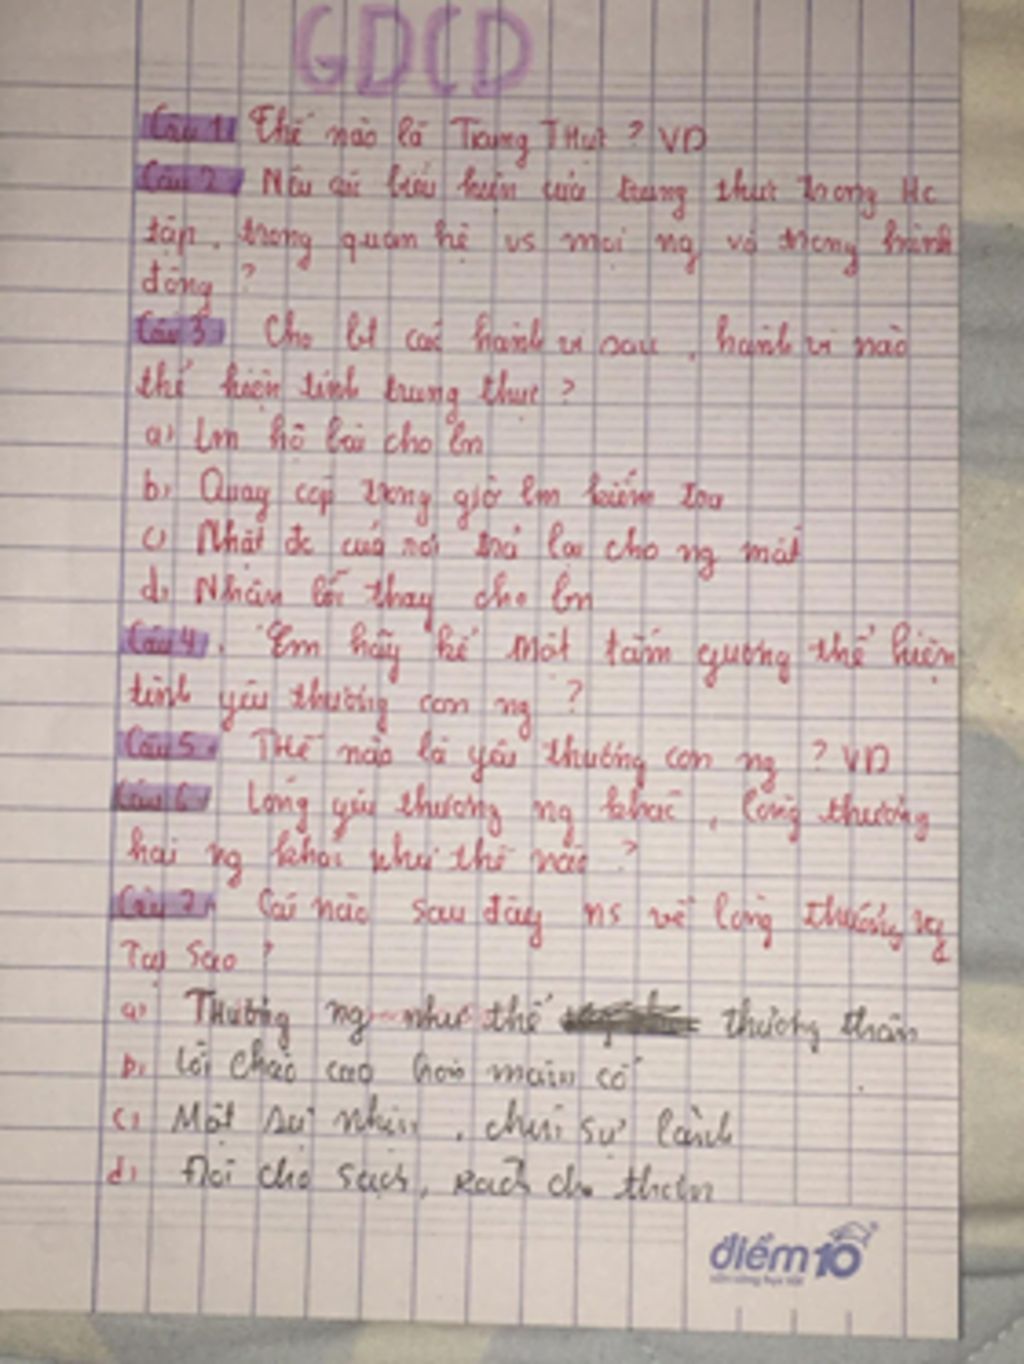 GDCD
Câu 1: Thế nào là Trung THực? VD
Câu 2: Nêu các biểu hiện của trung thực trong Hc
tập, trong quan hệ vs mọi ng và trong hành
động?
Câu 3: Cho bt các hành vi sau, hành vi nào
thể hiện tính trung thực?
a) Lm hộ bài cho bn
b) Quay cop trong giờ lm kiểm tra
c) Nhặt đc của rơi trả lại cho ng mất
d) Nhận lỗi thay cho bn
Câu 4: Em hãy kể một tấm gương thể hiện
tình yêu thương con ng?
Câu 5: THế nào là yêu thương con ng? VD
Câu 6: Lòng yêu thương ng khác, lòng thương
hại ng khác như thế nào?
Câu 7: Câu nào sau đây ns về lòng thương ng
Tại sao?
a) THương ng như thể thương thân
b) Lời chào cao hơn mâm cỗ
c) Một sự nhịn, chín sự lành
d) Đói cho sạch, Rách cho thơm
điểm10